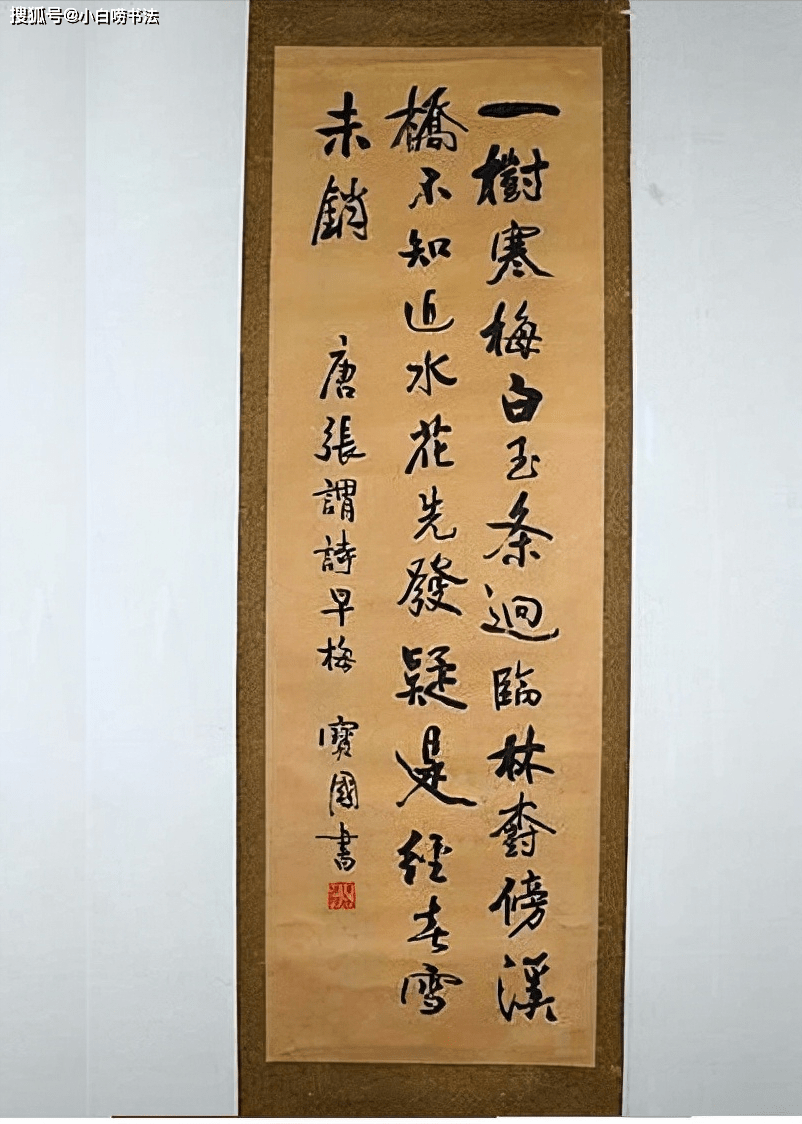 搜狐号@小白唠书法
一樹寒梅白玉条迴臨林村傍溪
橋不知近水花先發疑是經春雪
未銷
唐張謂詩早梅 寶國書